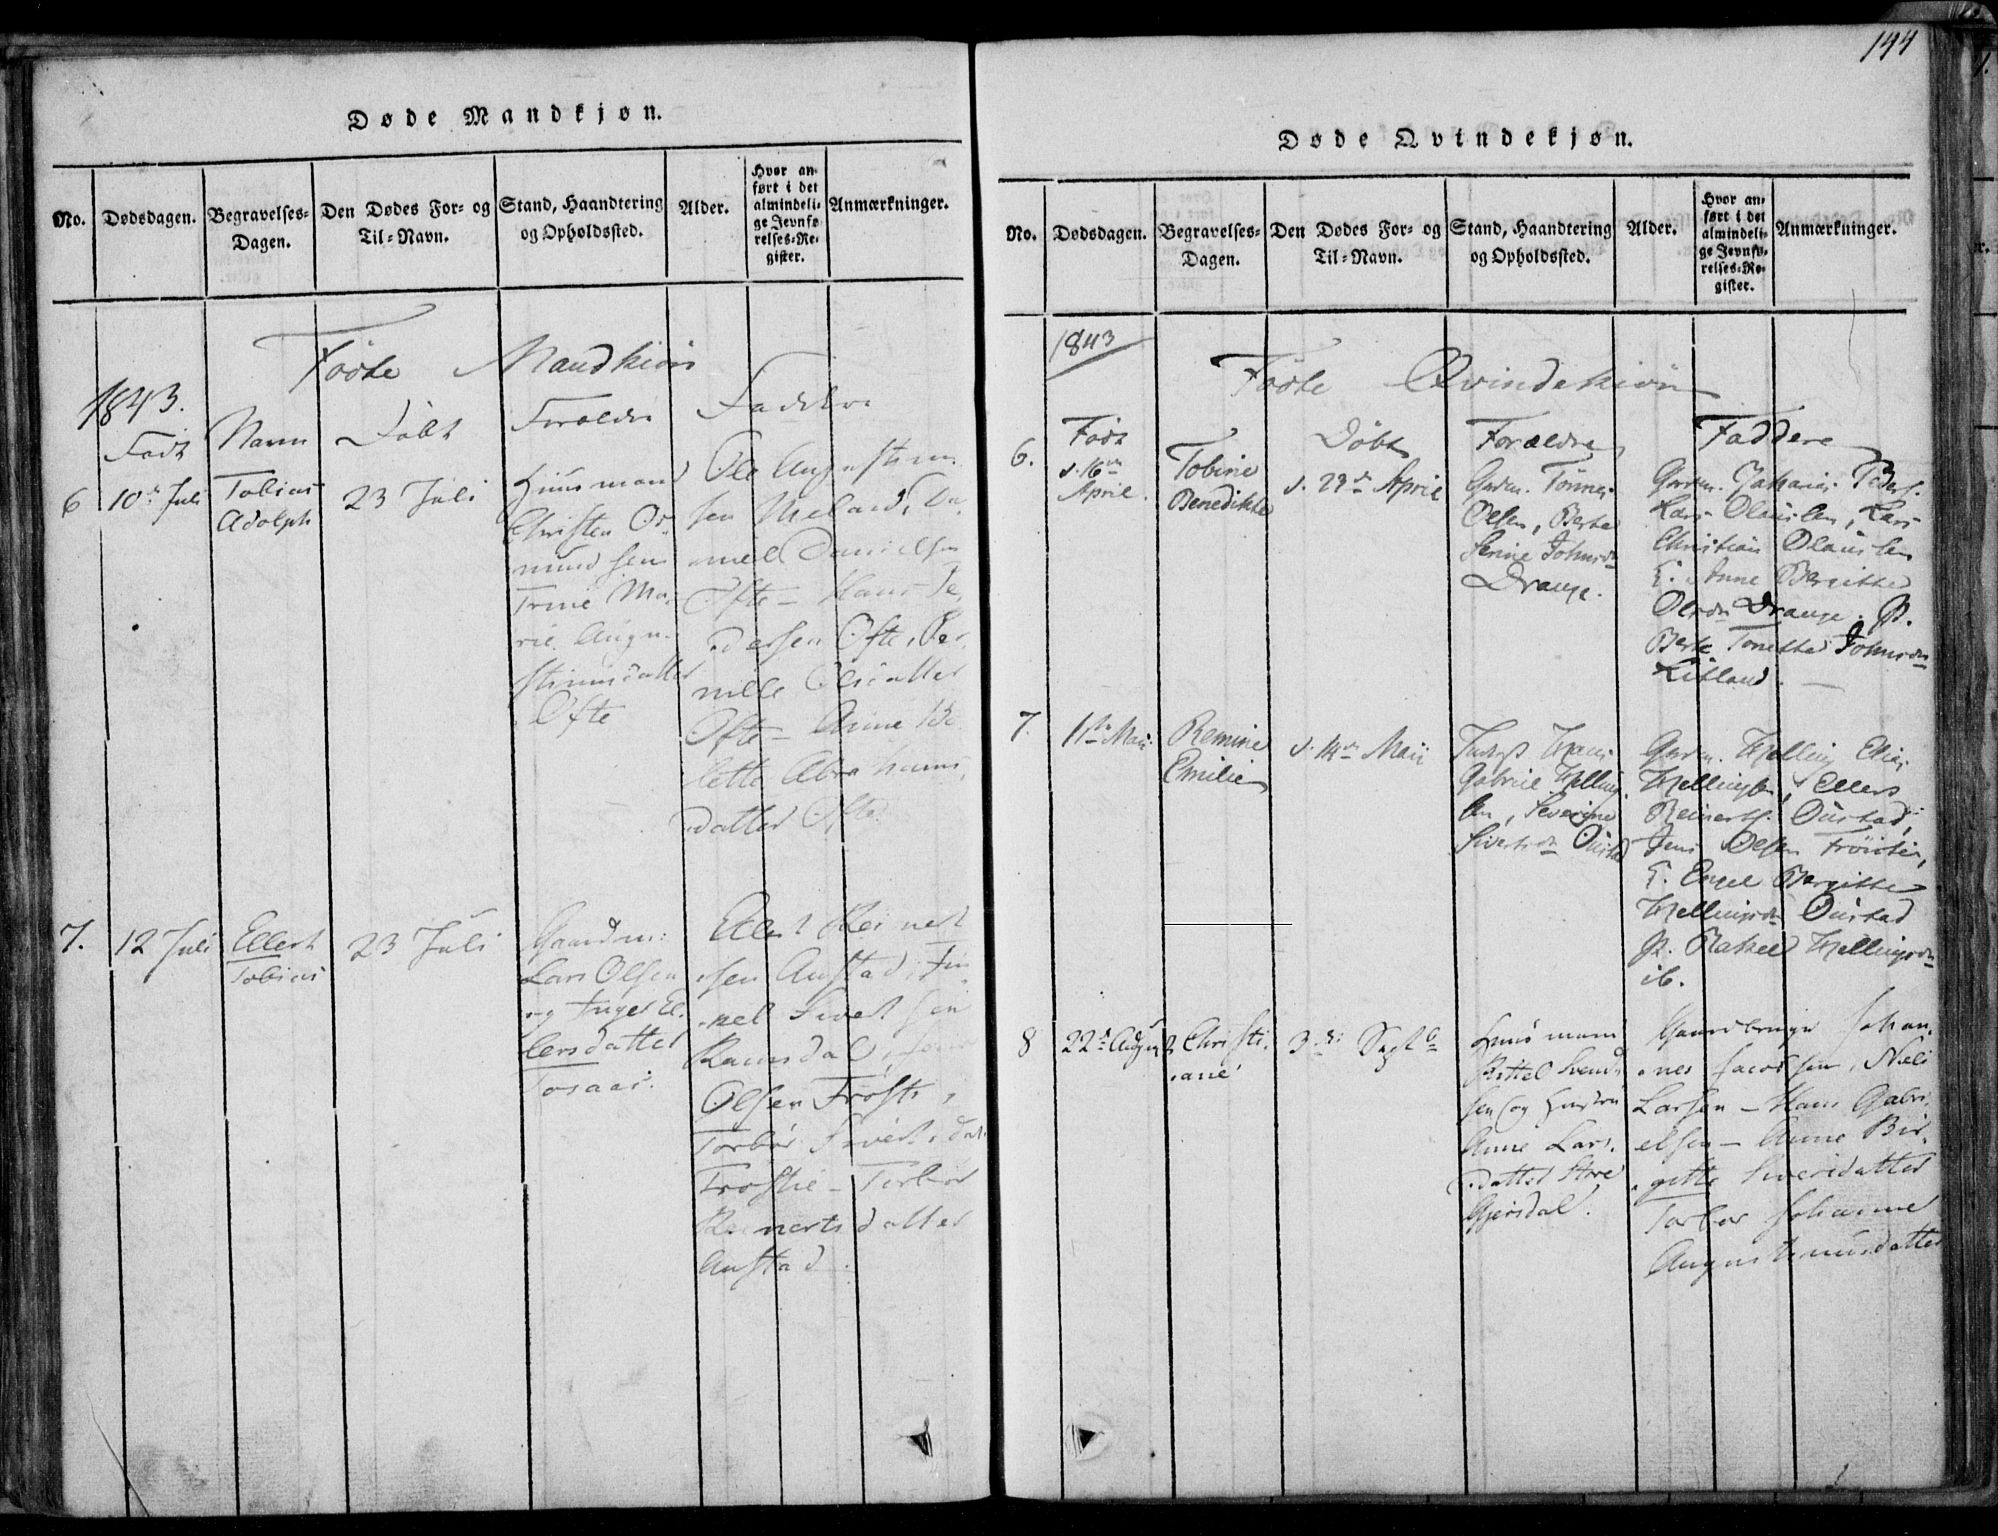 Døde Mandkjøn.
No.
Dødsdagen.
Begravelses-
Dagen.
Den Dødes For- og
Til-Navn.
Stand, Haandtering
og Opholdssted.
Alder.
Hvor an-
ført i det
almindeli-
ge Jevnfø-
relses-Re-
gister.
Anmærkninger.
Födte Mandkiön
1843.
Födt
Navn
Döbt
Forældre
Faddere
6
10de Juli
Tobias
Adolph
23 Juli
Huusmand
Christen Os-
mundsen
Trine Ma-
rie Augu-
stinusdatter
Ofte
Ole Augustinu-
sen Meland, Da-
niel Danielsen
Ofte - Hans Pe-
dersen Ofte, Per-
nille Olsdatter
Ofte - Anne Bo-
lette Abrahams-
datter Ofte
7.
12 Juli
Ellert
Tobias
23 Juli
Gaardm:
Lars Olsen
og Inger El-
lersdatter
Tosaas.
Ellert Reinert-
sen Austad,
Sivertsen
Ramsdal,
Olsen Frösti,
Torbör Sivertsdat.
Tröstie - Torbör
Reinertsdatter
Austad.
144
Døde Qvindekjøn.
No.
Dødsdagen.
Begravelses-
Dagen.
Den Dødes For- og
Til-Navn.
Stand, Haandtering
og Opholdssted.
Alder.
Hvor an-
ført i det
almindeli-
ge Jevnfø-
relses-Re-
gister.
Anmærkninger.
1843
Födte Qvindekiön
Födt
Döbt
Forældre
Faddere
6.
d. 16de
April.
Tobine
Benedikte
d. 23de April
Gaardm. Tönnes
Olsen, Berte
Serine Johnsdr
Drange.
Gaardm. Zakarias Peders.
Lars Olausen, Lars
Christian Olausen
G. Anne Bergitte
Olsdr Drange. P.
Berte Tonette Johnsdr
Litland.
7.
11te Maii
Remine
Emilie
d. 14de Maii
Hans
Gabriel Kjelling-
sen, Severine
Sivertsdr Öustad
Gaardm. Kjelling Elias
Kjellingsen, Ellert
Reinerts. Öustad,
Jens Olsen Tröistei,
G. Engel Bergitte
Kjellingsdr Öustad
P. Rakel Kjellingsdr
ib.
8
22de August
Christi-
ane
3die Septb
Huusmand
Kittel Svend-
sen og Hustru
Anne Lars-
datter Store
Gjersdal.
Gaardbruger Johan-
nes Jacobsen, Niels
Larsen - Hans Gabri-
elsen - Anne Bir-
gitte Siversdatter
Torbor Johanne
Augustinusdatter